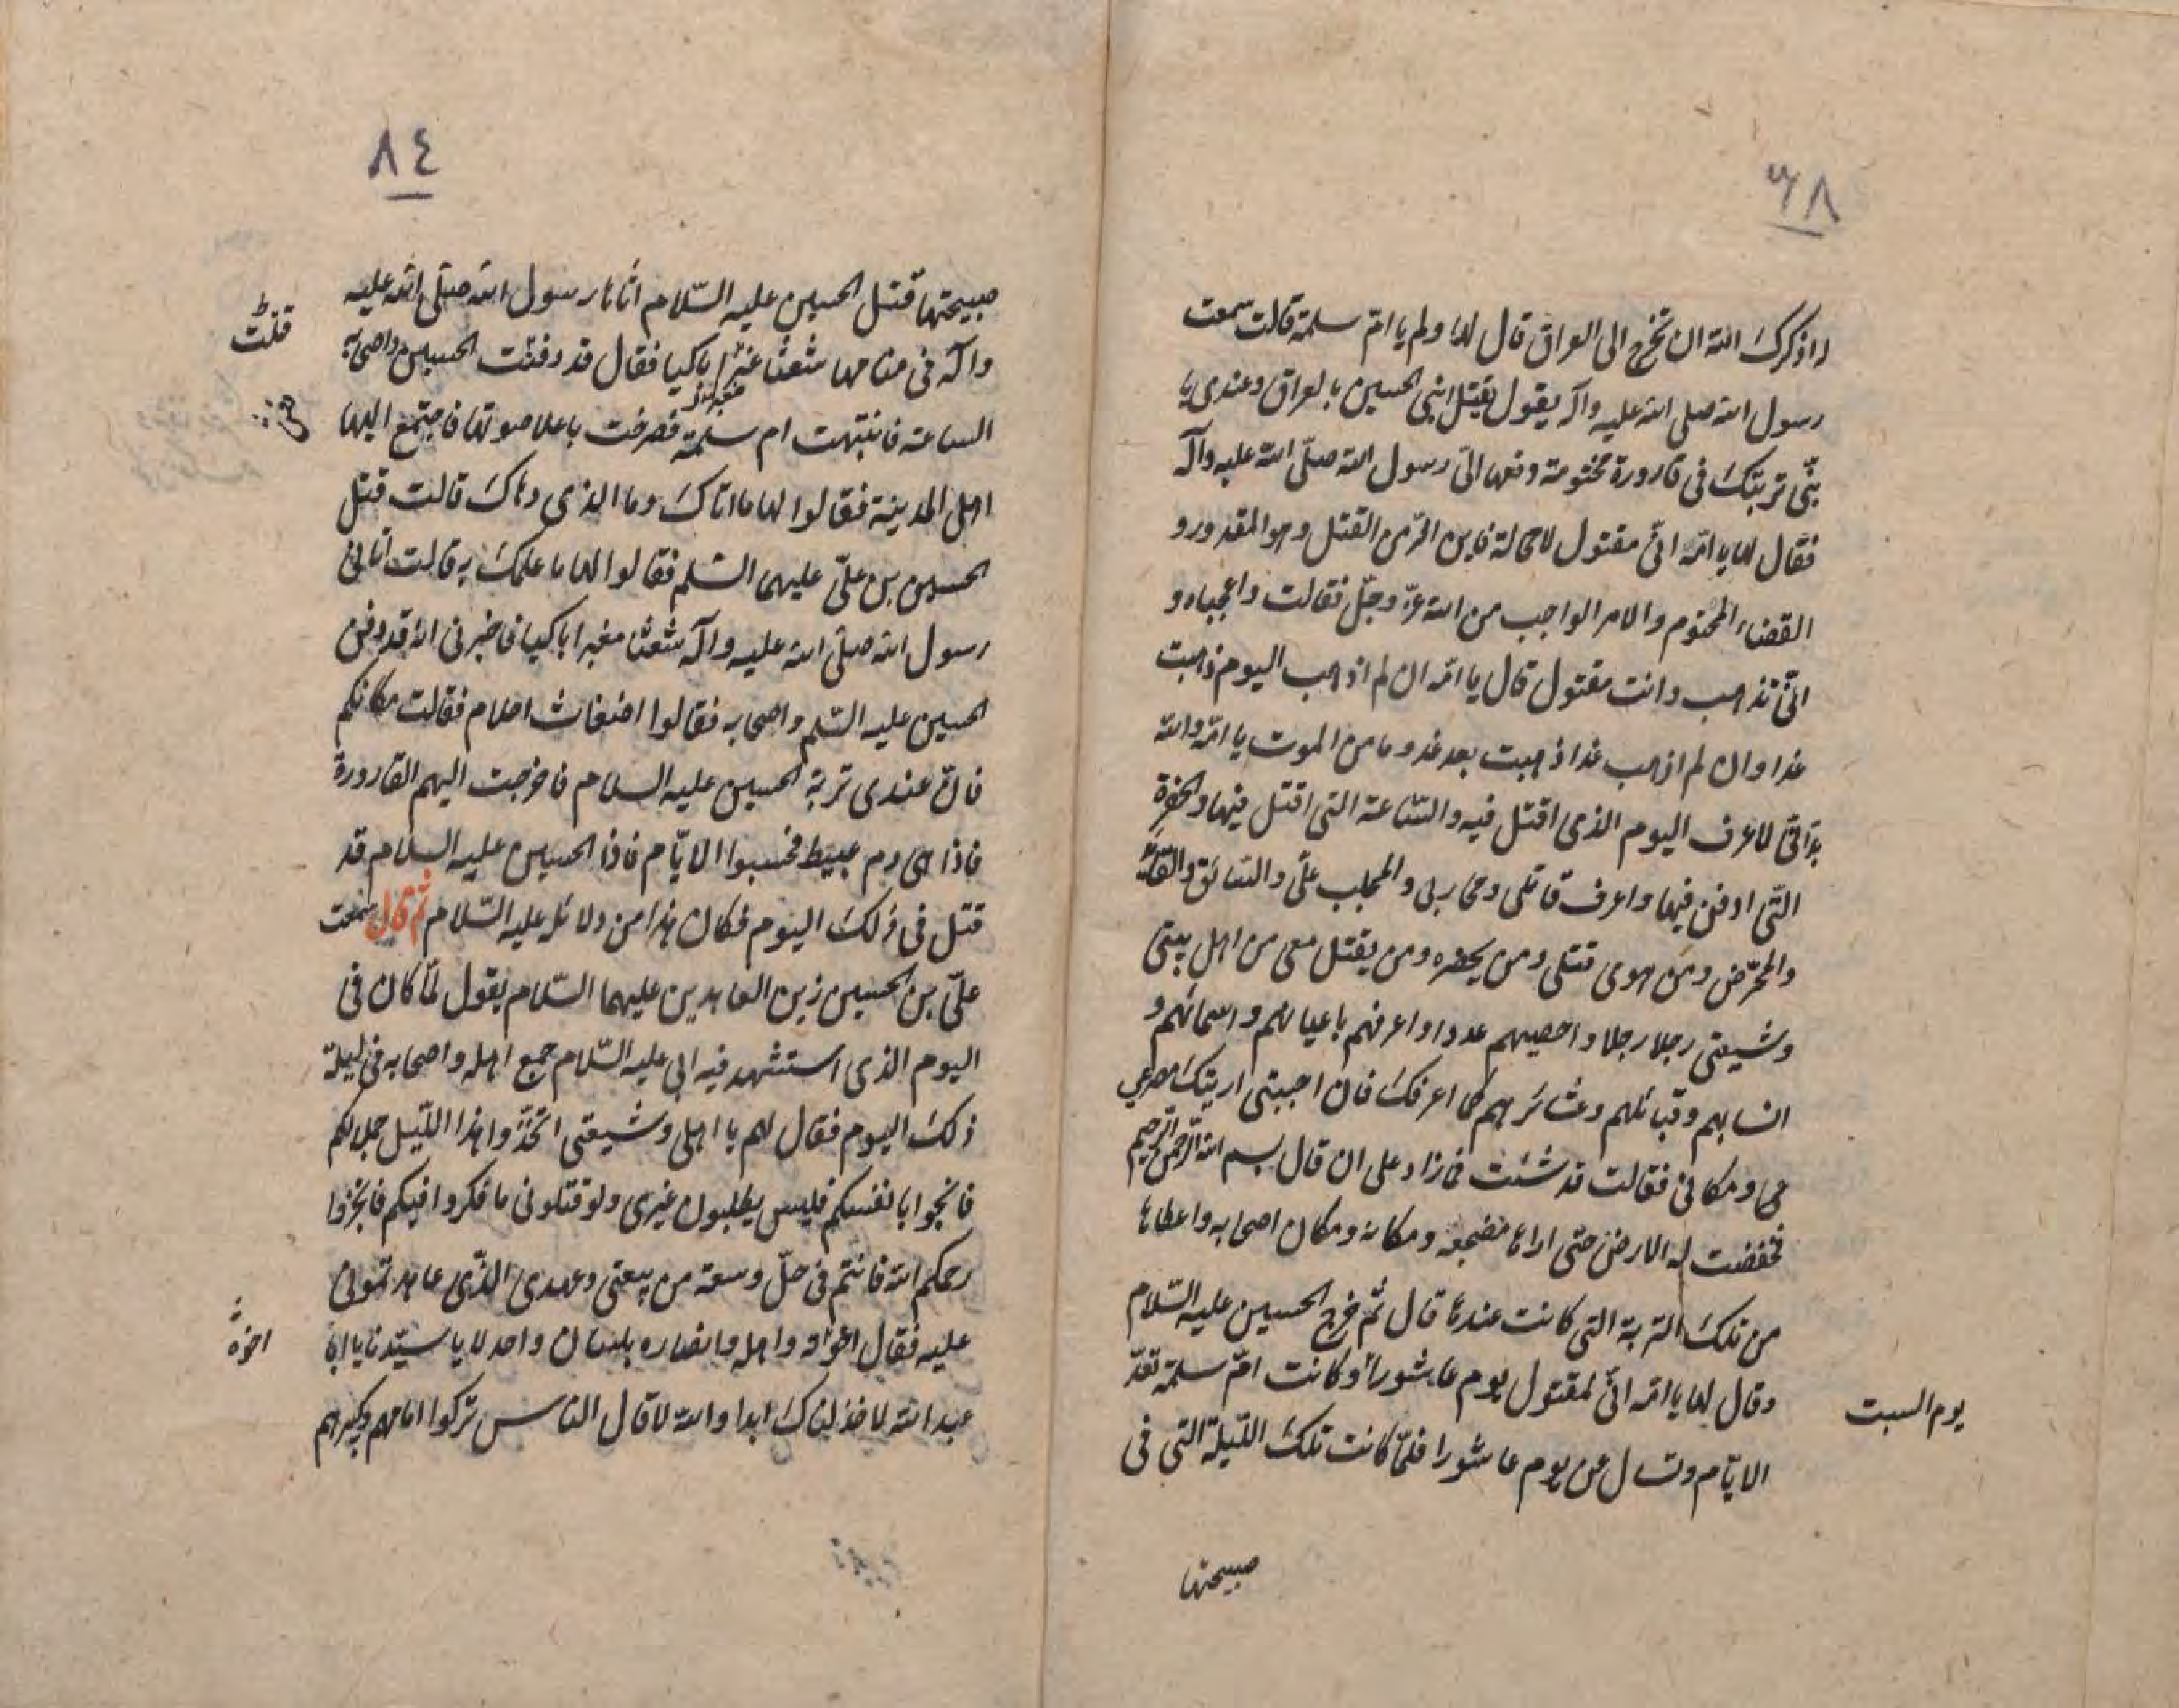 ٨٣
اذكرك الله ان تخرج الى العراق قال لها ولم يا امّ سلمة قالت سمعت
رسول الله صلى الله عليه وآله يقول يقتل ابنى الحسين بالعراق وعندى يا
بنىّ تربتك فى قارورة مختومة دفعها الىّ رسول الله صلّى الله عليه وآله
فقال لها يا امّه انّى مقتول لا محالة فاين المفرّ من القتل وهو المقدور و
القضاء المحتوم والامر الواجب من الله عزّ وجلّ فقالت واعجباه و
انّى تذهب وانت مقتول قال يا امّه ان لم اذهب اليوم ذهبت
غدا وان لم اذهب غدا ذهبت بعد غد وما من الموت يا امّه والله
بدّ انّى لاعرف اليوم الذى اقتل فيه والسّاعة التى اقتل فيها والحفرة
التّى ادفن فيها واعرف قاتلى ومحاربى والمجلب علىّ والسّائق والقائد
والمحرّض ومن هوى قتلى ومن يحضره ومن يقتل معى من اهل بيتى
وشيعتى رجلا رجلا واحصيهم عددا واعرفهم باعيانهم واسمائهم و
انسابهم وقبائلهم وعشائرهم كما اعرفك فان احببتى اريتك مصرعى
ومكانى فقالت قد شئت فما زاد على ان قال بسم الله الرّحمن الرّحيم
فخفضت له الارض حتى اراها مضجعه ومكانه ومكان اصحابه واعطاها
من تلك التربة التى كانت عندها قال ثم خرج الحسين عليه السّلام
وقال لها يا امّه انّى لمقتول يوم عاشورا وكانت امّ سلمة تعدّ
يوم السبت
الايّام وتسال عن يوم عاشورا فلمّا كانت تلك اللّيلة التى فى
صبيحتها
٨٤
صبيحتها قتل الحسين عليه السّلام اتاها رسول الله صلّى الله عليه
وآله فى منامها شعثا باكيا فقال قد دفنت الحسين واصحابه
الساعة فانتبهت ام سلمة فصرخت باعلا صوتها فاجتمع اليها
اهل المدينة فقالوا لها ما اتاك وما الذى دهاك قالت قتل
الحسين بن علىّ عليهما السّلم فقالوا لها ما علمك به قالت اتانى
رسول الله صلّى الله عليه وآله شعثا مغبرا باكيا فاخبرنى انه قد دفن
الحسين عليه السّلم واصحابه فقالوا اضغاث احلام فقالت مكانكم
فانّ عندى تربة الحسين عليه السلام فاخرجت اليهم القارورة
فاذا هى دم عبيط فحسبوا الايّام فاذا الحسين عليه السلام قد
قتل فى ذلك اليوم فكان هذا من دلائله عليه السّلام ثم قال سمعت
علىّ بن الحسين زين العابدين عليهما السّلام يقول لمّا كان فى
اليوم الذى استشهد فيه ابى عليه السّلام جمع اهله واصحابه فى ليلة
ذلك اليوم فقال لهم يا اهلى وشيعتى اتّخذوا هذا اللّيل جملا لكم
فانجوا بانفسكم فليس يطلبون غيرى ولو قتلونى ما فكروا فيكم فانجوا
رحمكم الله فانتم فى حلّ وسعة من بيعتى وعهدى الّذى عاهدتمونى
عليه فقال اخوته واهله وانصاره بلسان واحد لا يا سيّدنا يا ابا
اخوة
عبد الله لا خذلناك ابدا والله لا قال الناس تركوا امامهم وكبيرهم